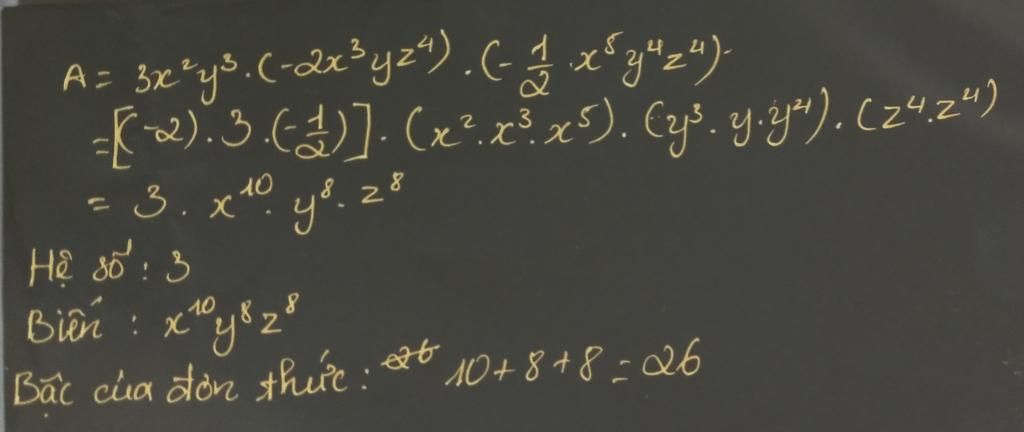 A = 3x²y³.(-2x³yz⁴).(-1/2.x⁵y⁴z⁴).
=[(-2).3.(-1/2)].(x².x³.x⁵).(y³.y.y⁴).(z⁴.z⁴)
= 3. x¹⁰. y⁸. z⁸
Hệ số: 3
Biến: x¹⁰y⁸z⁸
Bậc của đơn thức: 26 10+8+8=26